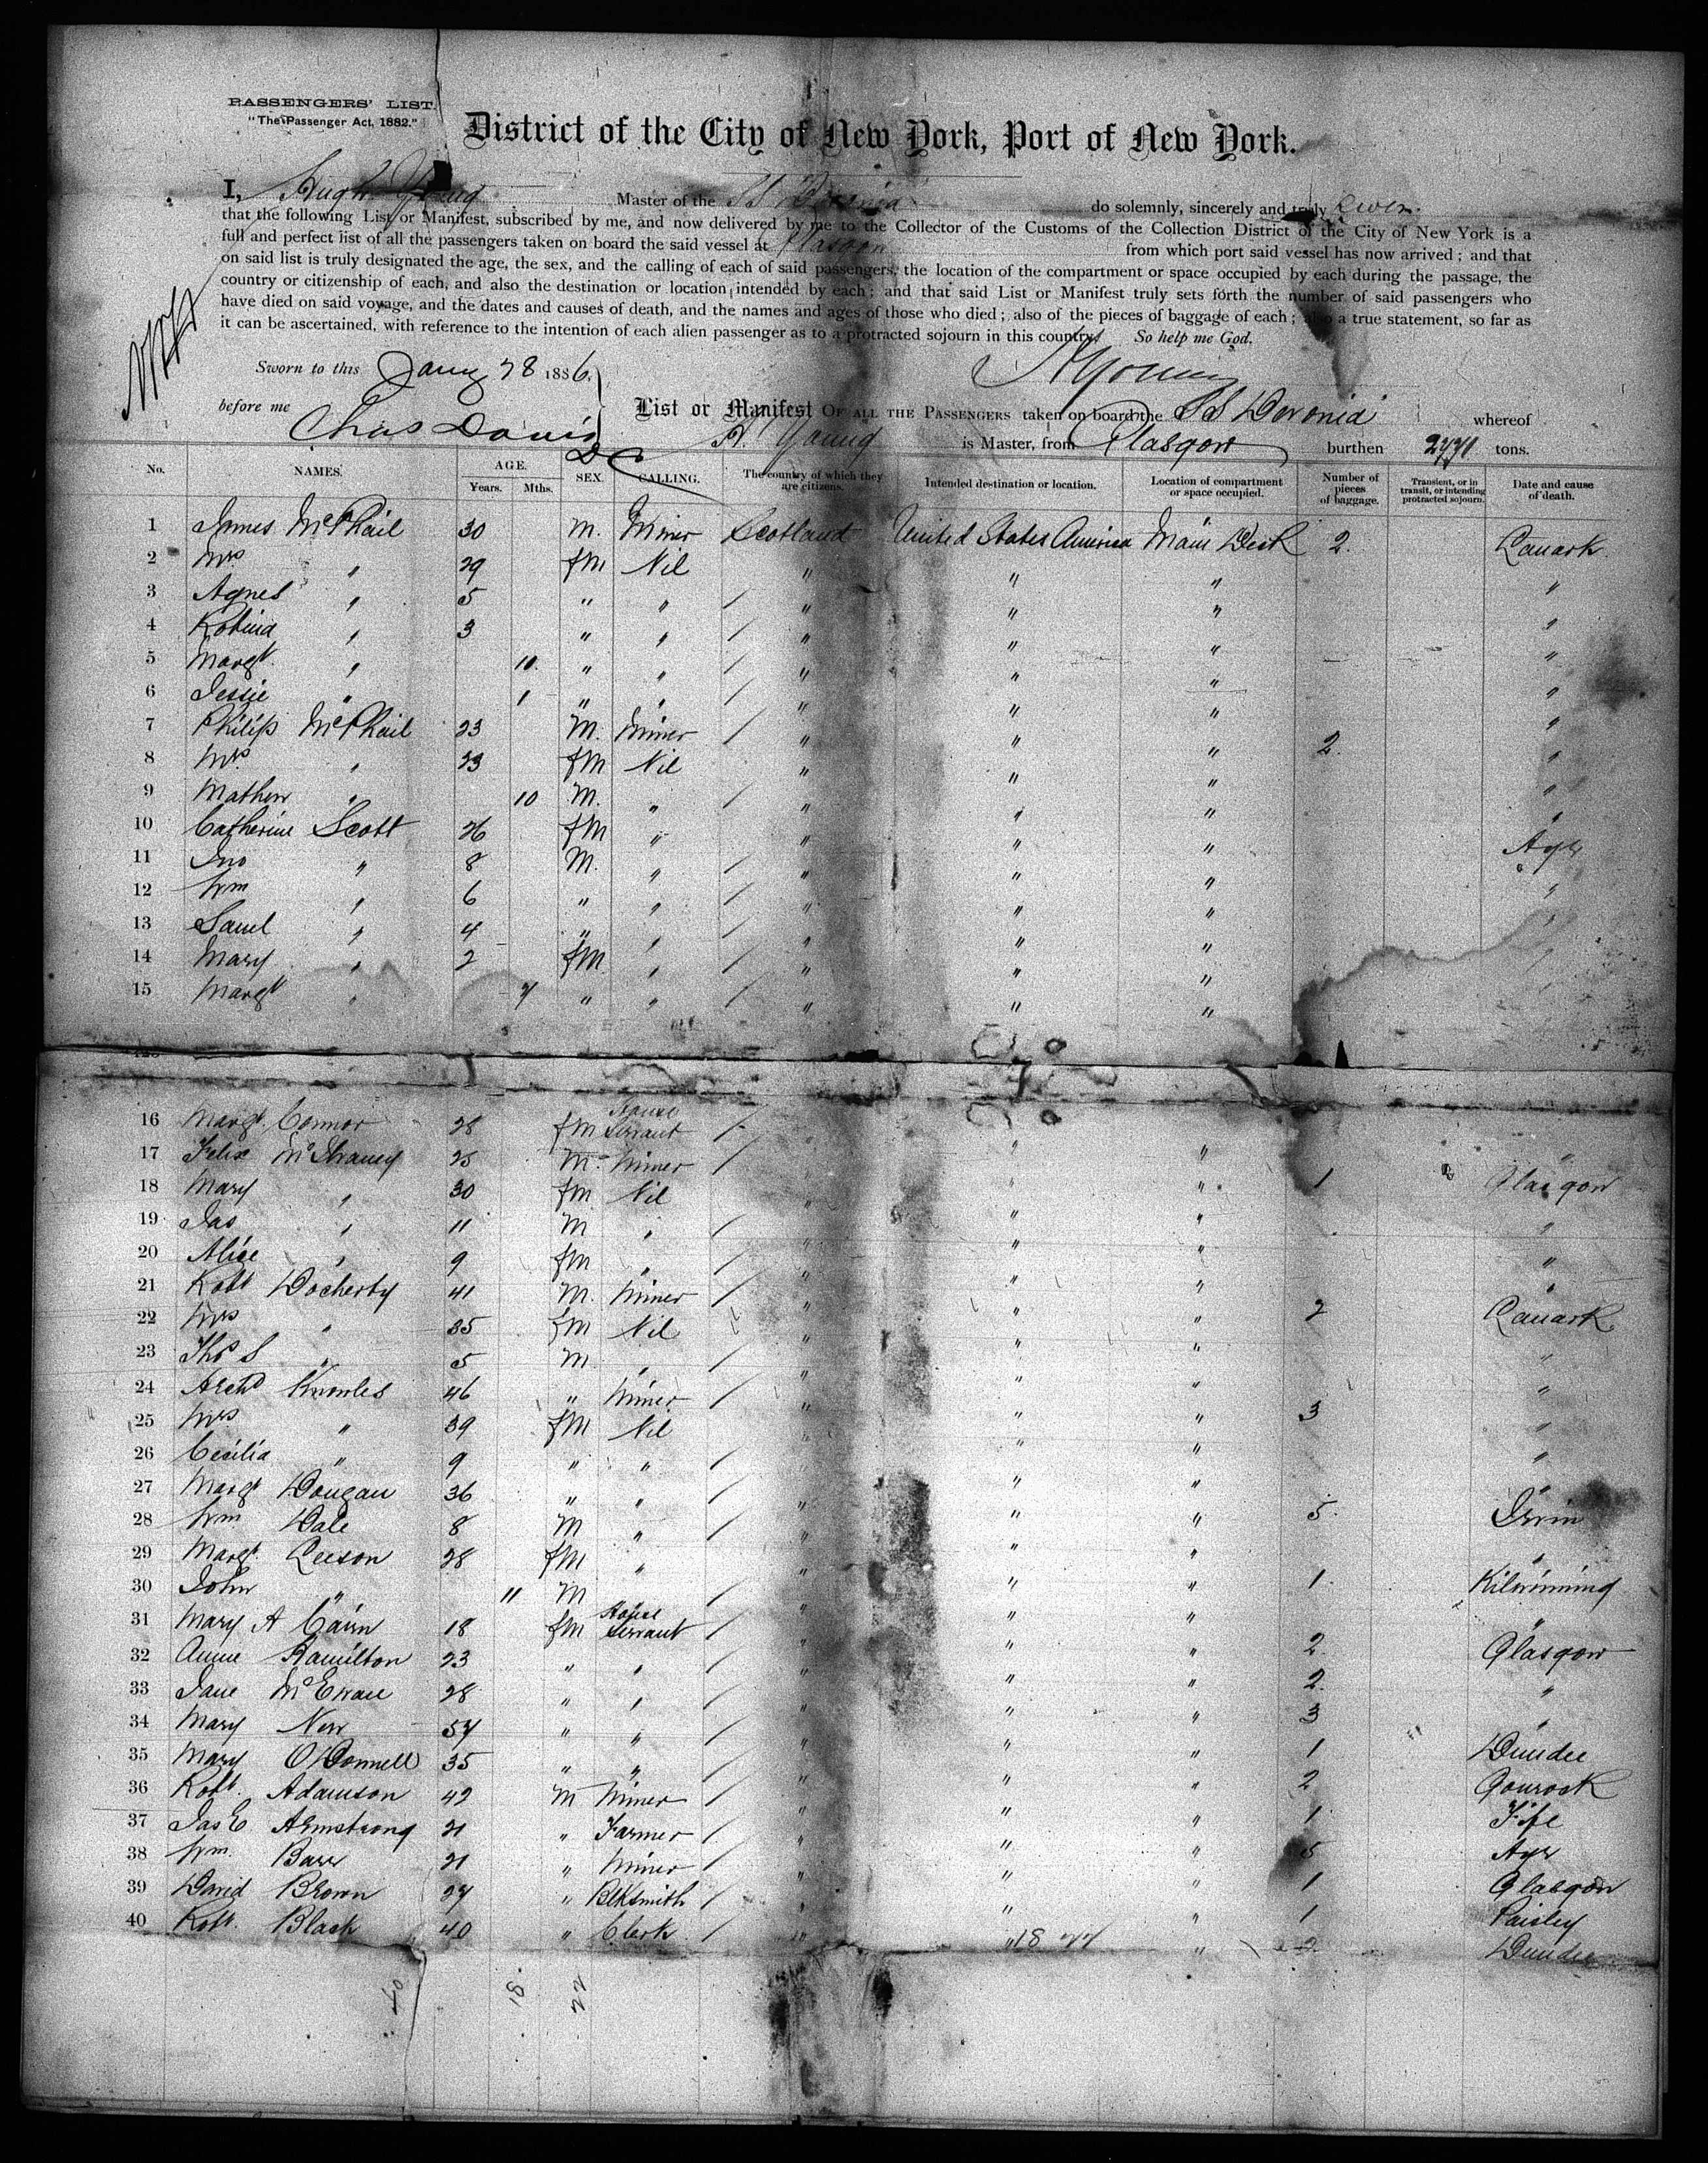 PASSENGERS' LIST.
"The Passenger Act, 1882."
District of the City of New York, Port of New York.
I, Hugh Young Master of the SS Devonia do solemnly, sincerely and truly swear
that the following List or Manifest, subscribed by me, and now delivered by me to the Collector of the Customs of the Collection District of the City of New York is a
full and perfect list of all the passengers taken on board the said vessel at Glasgow from which port said vessel has now arrived; and that
on said list is truly designated the age, the sex, and the calling of each of said passengers, the location of the compartment or space occupied by each during the passage, the
country or citizenship of each, and also the destination or location intended by each; and that said List or Manifest truly sets forth the number of said passengers who
have died on said voyage, and the dates and causes of death, and the names and ages of those who died; also of the pieces of baggage of each; also a true statement, so far as
it can be ascertained, with reference to the intention of each alien passenger as to a protracted sojourn in this country. So help me God.
Sworn to this Jany 28 1886 HYoung
before me Chas Davis DC
List or Manifest OF ALL THE PASSENGERS taken on board the SS Devonia whereof
H. Young is Master, from Glasgow burthen tons.
No. NAMES. AGE. Years. Mths. SEX. CALLING. The country of which they are citizens. Intended destination or location. Location of compartment or space occupied. Number of pieces of baggage. Transient, or in transit, or intending protracted sojourn. Date and cause of death.
1 James McPhail 30 M. Miner Scotland United States America Main Deck 2. Lanark
2 Mrs " 29 fm Nil " " " "
3 Agnes " 5 " " / " " " "
4 Robina " 3 " " / " " " "
5 Margt. " 10. " " / " " " "
6 Jessie " 1 " " / " " " "
7 Philip McPhail 23 M. Miner / " " " 2. "
8 Mrs " 23 fm Nil " " " "
9 Mathew " 10 M. " / " " " "
10 Catherine Scott 26 fm " " " " Ayr
11 Jno " 8 M. " / " " " "
12 Wm " 6 " " / " " " "
13 Saml " 4 " " / " " "
14 Mary " 2 fm " / " " "
15 Margt " 7 " " / " " "
16 Margt. Connor 28 fm House Servant / " " " "
17 Felix 25 M. Miner / " " " 1 Glasgow
18 Mary " 30 fm Nil " " " "
19 Jas " 11 M " / " " " "
20 Alice " 9 fm " / " " " "
21 Robt Docherty 41 M. Miner / " " " 2 Lanark
22 Mrs " 35 fm Nil " " " "
23 Thos S " 5 M " / " " " "
24 Archd Knowles 46 " Miner / " " " 3 "
25 Mrs " 39 fm Nil " " " "
26 Cecilia " 9 " " / " " " "
27 Margt Dougan 36 " " / " " " 5. Irvin
28 Wm Dale 8 M " / " " " "
29 Margt. Leeson 28 fm " " " " 1. Kilwinning
30 John " 11 M / " " " "
31 Mary A Cairn 18 fm House Servant / " " " 2. Glasgow
32 Annie Hamilton 23 " " / " " " 2. "
33 Jane McEwan 28 " " / " " " 3 "
34 Mary New " " / " " " 1 Dundee
35 Mary O'Donnell 35 " " / " " " 2 Gourock
36 Robt. Adamson 42 M Miner / " " " 1. Fife
37 Jas E Armstrong 21 " Farmer / " " " 5 Ayr
38 Wm. Barr 21 " Miner / " " " 1 Glasgow
39 David Brown 27 " Blksmith / " " " 1 Paisley
40 Robt. Black 40 " Clerk / " " " 2. Dundee
18 22
40 18 22